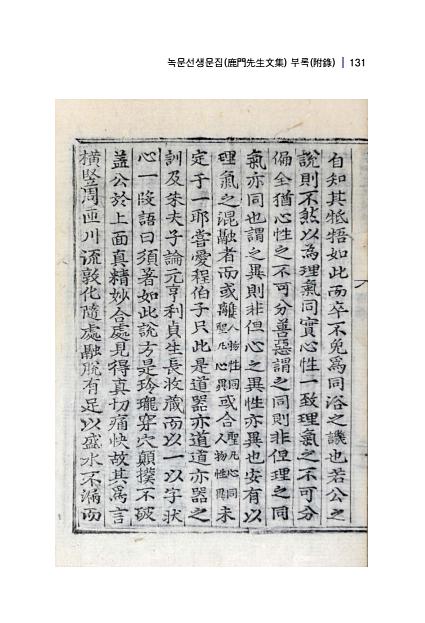 녹문선생문집(鹿門先生文集) 부록(附錄) | 131
自知其牴牾如此而卒不免爲同浴之譏也若公之
說則不然以爲理氣同實心性一致理氣之不可分
偏全猶心性之不可分善惡謂之同則非但理之同
氣亦同也謂之異則非但心之異性亦異也安有以
理氣之混融者而或離人物性同聖凡心異或合聖凡心同人物性異未
定于一耶嘗愛程伯子只此是道器亦道道亦器之
訓及朱夫子論元亨利貞生長收藏而以一以字狀
心一段語曰須著如此說方是玲瓏穿穴顚撲不破
蓋公於上面真精妙合處見得真切痛快故其爲言
橫竪周匝川流敦化隨處融脫有足以盛水不漏而